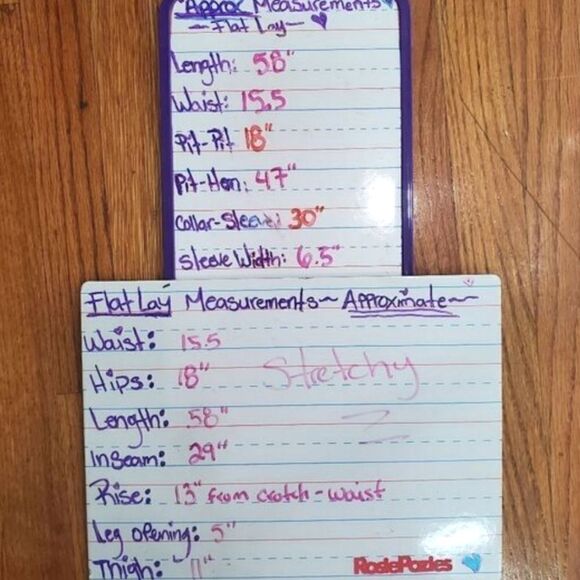 Approx Measurements
~ Flat Lay ~
Length: 58"
Waist: 15.5
Pit-Pit 18"
Pit-Hem: 47"
Collar-Sleeve: 30"
Sleeve Width: 6.5"
Flat Lay Measurements ~ Approximate ~
Waist: 15.5
Hips: 18" Stretchy
Length: 58"
Inseam: 29"
Rise: 13" from crotch - waist
Leg opening: 5"
Thigh: 11"
RosiePozies